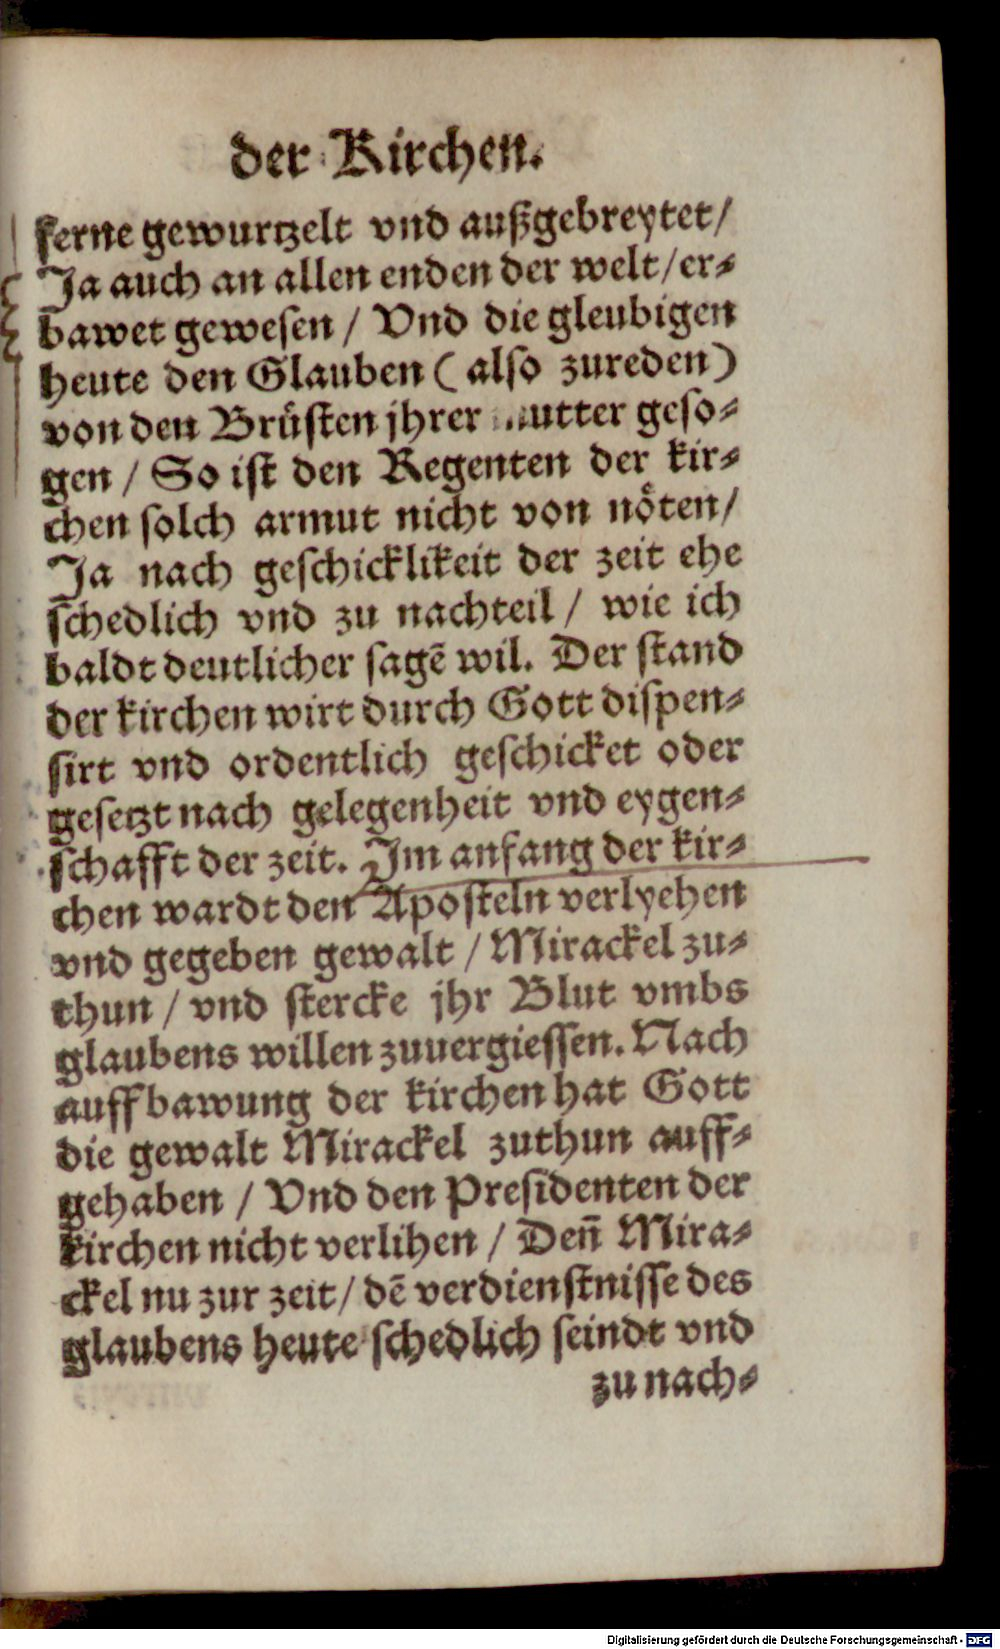 der Kirchen.
ferne gewurtzelt vnd außgebreytet/
Ja auch an allen enden der welt/er-
bawet gewesen / Vnd die gleubigen
heute den Glauben ( also zureden)
von den Brüsten jhrer mutter geso-
gen / So ist den Regenten der kir-
chen solch armut nicht von nöten/
Ja nach geschicklikeit der zeit ehe
schedlich vnd zu nachteil / wie ich
baldt deutlicher sagē wil. Der stand
der kirchen wirt durch Gott dispen-
sirt vnd ordentlich geschicket oder
gesetzt nach gelegenheit vnd eygen-
schafft der zeit. Im anfang der kir-
chen wardt den Aposteln verlyehen
vnd gegeben gewalt / Mirackel zu-
thun / vnd stercke jhr Blut vmbs
glaubens willen zuuergiessen. Nach
auffbawung der kirchen hat Gott
die gewalt Mirackel zuthun auff-
gehaben / Vnd den Presidenten der
kirchen nicht verlihen / Deñ Mira-
ckel nu zur zeit/ dē verdienstnisse des
glaubens heute schedlich seindt vnd
zu nach-
Digitalisierung gefördert durch die Deutsche Forschungsgemeinschaft - DFG